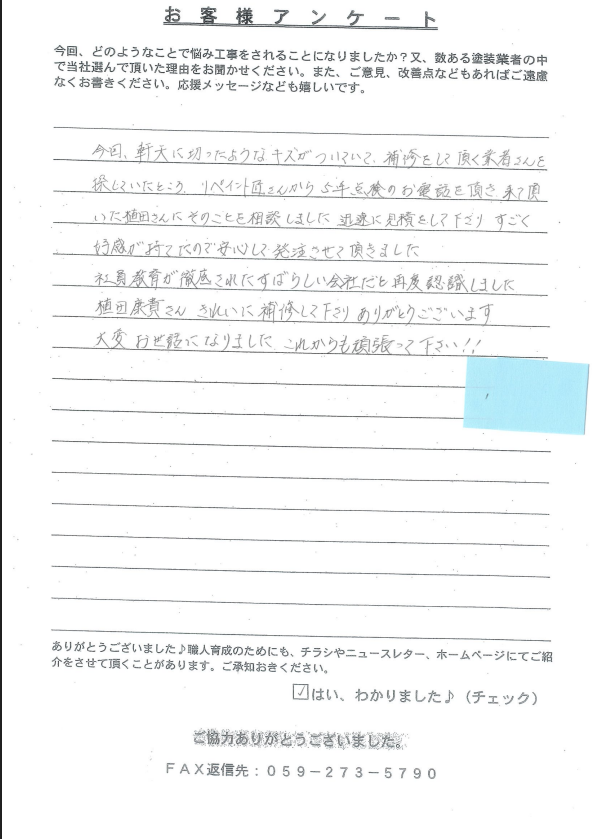 お客様アンケート
今回、どのようなことで悩み工事をされることになりましたか？又、数ある塗装業者の中
で当社選んで頂いた理由をお聞かせください。また、ご意見、改善点などもあればご遠慮
なくお書きください。応援メッセージなども嬉しいです。
今回、軒天に切ったようなキズがついていて、補修をして頂く業者さんを
探していたところ、リペイント匠さんから5年点検のお電話を頂き、来て頂
いた植田さんにそのことを相談しました 迅速に見積をして下さり すごく
好感が持てたので安心して発注させて頂きました
社員教育が徹底されたすばらしい会社だと再度認識しました
植田康貴さん きれいに補修して下さり ありがとうございます
大変 お世話になりました これからも頑張って下さい!!
ありがとうございました♪職人育成のためにも、チラシやニュースレター、ホームページにてご紹
介をさせて頂くことがあります。ご承知おきください。
☑はい、わかりました♪（チェック）
ご協力ありがとうございました。
FAX返信先：059－273－5790